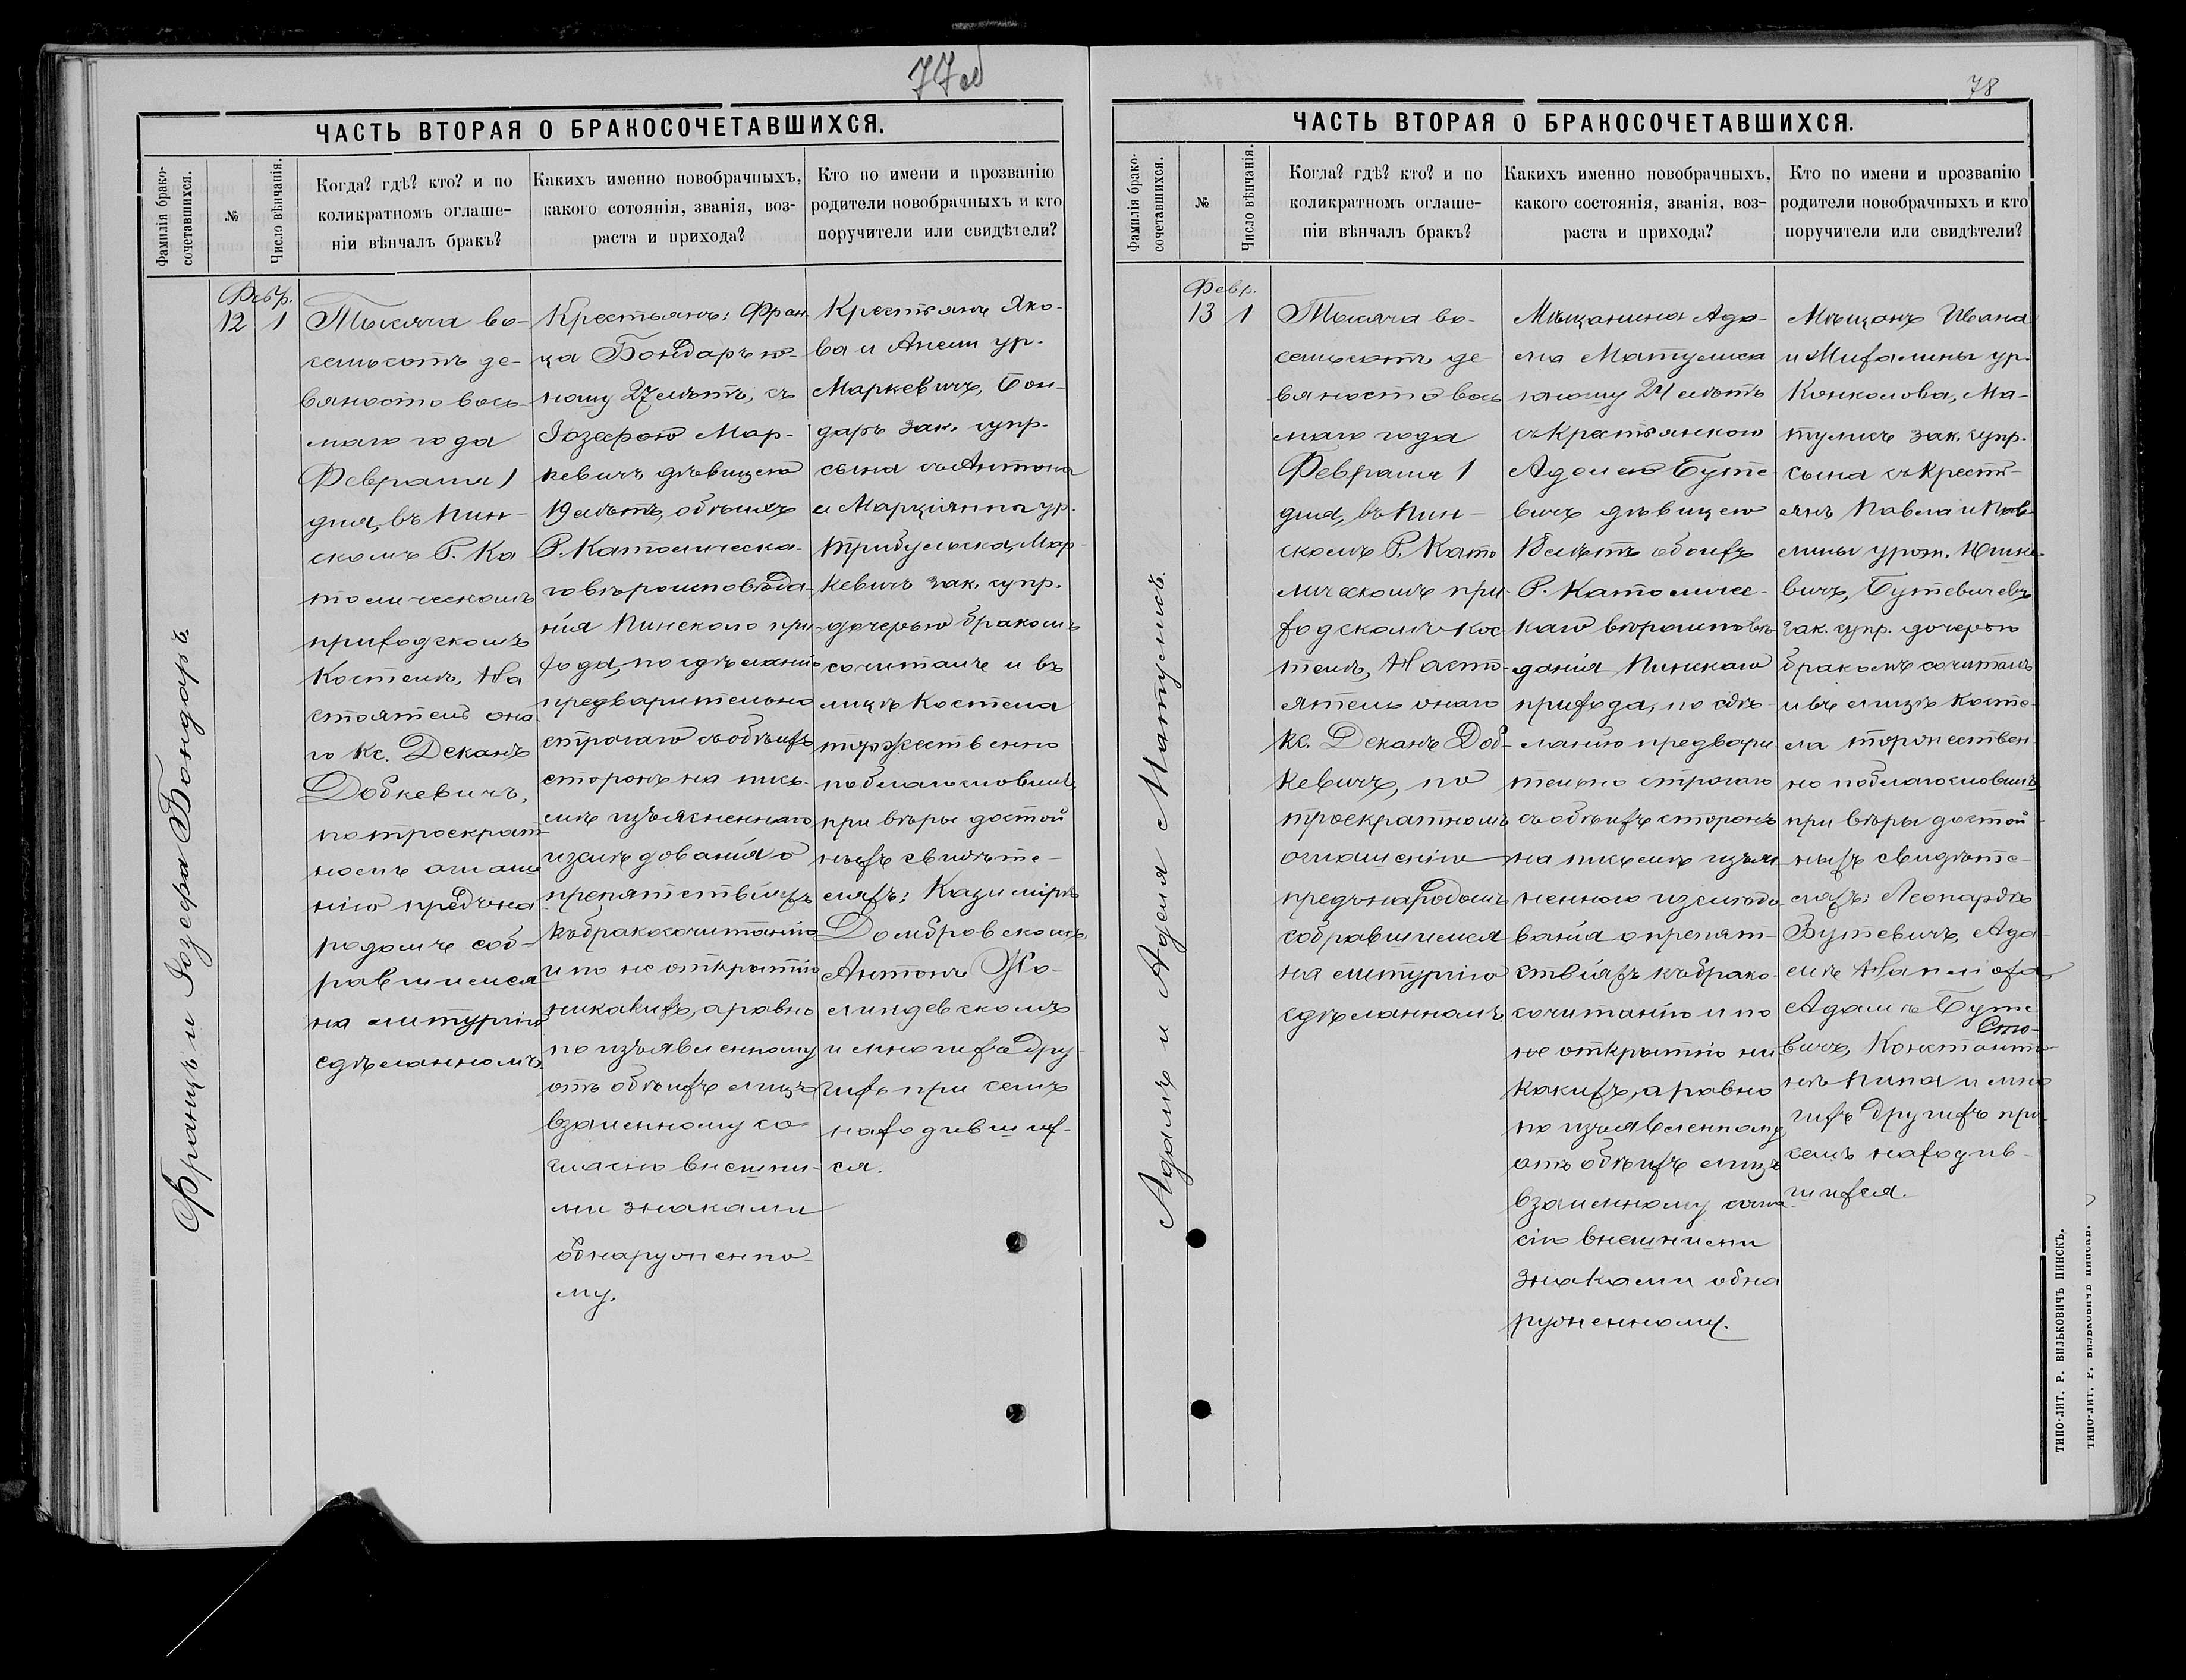 77об
ЧАСТЬ ВТОРАЯ О БРАКОСОЧЕТАВШИХСЯ.
Фамиліи брако-
сочетавшихся.
№
Число вѣнчанія.
Когда? гдѣ? кто? и по
коликратномъ оглаше-
ніи вѣнчалъ бракъ?
Какихъ именно новобрачныхъ,
какого сотоянія, званія, воз-
раста и прихода?
Кто по имени и прозванію
родители новобрачныхъ и кто
поручители или свидѣтели?
Францъ и Іозефа Бондаръ.
Февр.
12 1
Тысяча во-
семьсотъ де-
вяносто вось-
маго года
Февраля 1
дня, въ Пин-
скомъ Р. Ка
толическомъ
приходскомъ
Костелѣ, На
стоятель она-
го Кс. Деканъ
Добкевичъ,
по троекрат-
номъ оглаше
нію предъ на
родомъ соб-
равшимся
на литургію
сдѣланномъ
Крестьянъ: Фран-
ца Бондаръ ю-
ношу 27 лѣтъ, съ
Іозефою Мар-
кевичъ дѣвицею
19 лѣтъ, обоихъ
Р. Католическа-
го вѣроисповѣда-
нія Пинскаго при-
хода, по сдѣланію
предварительно
строгаго съ обѣихъ
сторонъ на пись-
мѣ изъясненнаго
изслѣдованія о
препятствіяхъ
къ бракосочитанію
и по не открытію
никакихъ, а равно
по изъявленному
отъ обѣихъ лицъ
взаимному со-
гласію внѣшни-
ми знаками
обнаруженно-
му.
Крестьянъ Яко-
ва и Анели ур.
Маркевичъ, Бон-
даръ зак. супр.
сына съ Антона
и Марціянны ур.
Трибульска, Мар-
кевичъ зак. супр.
дочерью бракомъ
сочиталъ и въ
лицѣ Костела
торжественно
поблагословилъ,
при вѣры достой
ныхъ свидѣте-
ляхъ: Казимірѣ
Домбровскомъ,
Антонѣ Жо-
линдевскомъ
и многихъ дру-
гихъ при семъ
находивших-
ся.
78
ЧАСТЬ ВТОРАЯ О БРАКОСОЧЕТАВШИХСЯ.
Фамиліи брако-
сочетавшихся.
№
Число вѣнчанія.
Когда? гдѣ? кто? и по
коликратномъ оглаше-
ніи вѣнчалъ бракъ?
Какихъ именно новобрачныхъ,
какого состоянія, званія, воз-
раста и прихода?
Кто по имени и прозванію
родители новобрачныхъ и кто
поручители или свидѣтели?
Адамъ и Аделя Матулисъ.
Февр.
13 1
Тысяча во-
семьсотъ де-
вяносто вось
маго года
Февраля 1
дня, въ Пин-
скомъ Р. Като
лическомъ при-
ходскомъ Кос
телѣ, Насто-
ятель онаго
Кс. Деканъ Доб-
кевичъ, по
троекратномъ
оглашенію
предъ народомъ
собравшимся
на литургію
сдѣланномъ
Мѣщанина Ада-
ма Матулиса
юношу 24 лѣтъ
съ Крестьянкою
Аделею Буте-
вичъ дѣвицею
18 лѣтъ обоихъ
Р. Католичес-
каго вѣроисповѣ
данія Пинскаго
прихода, по сдѣ-
ланію предвари-
тельно строгаго
съ обѣихъ сторонъ
на письмѣ изъяс
ненного изслѣдо
ванія о препят-
ствіяхъ къ брако-
сочитанію и по
не открытію ни
какихъ, а равно
по изъявленному
отъ обѣихъ лицъ
взаимному согла
сію внѣшними
знаками обна
руженному.
Мѣщанъ Ивана
и Михалины ур.
Конколова, Ма-
тулисъ зак. супр.
сына съ Кресть-
янъ Павла и Пав-
лины урож.
вичъ, Бутевичевъ
зак. супр. дочерью
бракомъ сочиталъ
и въ лицѣ Косте-
ла торжествен-
но поблагословилъ
при вѣры достой
ныхъ свидѣте-
ляхъ: Леонардѣ
Бутевичъ, Ада
мѣ
Адамѣ Буте
вичъ, Константи-
нѣ и мно
гихъ другихъ при
семъ находив-
шихся.
ТИПО-ЛИТ. Р. ВИЛЬКОВИЧЪ ПИНСКЪ.
ТИПО-ЛИТ. Р. ВИЛЬКОВИЧЪ ПИНСКЪ.